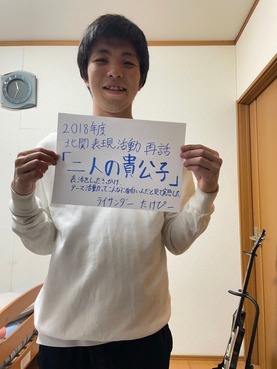 2018年度
北関表現活動 再話
「二人の貴公子」
表活をしたきっかけ
テーマ活動ってこんなに面白いんだと実感した
ライサンダー たけぴー